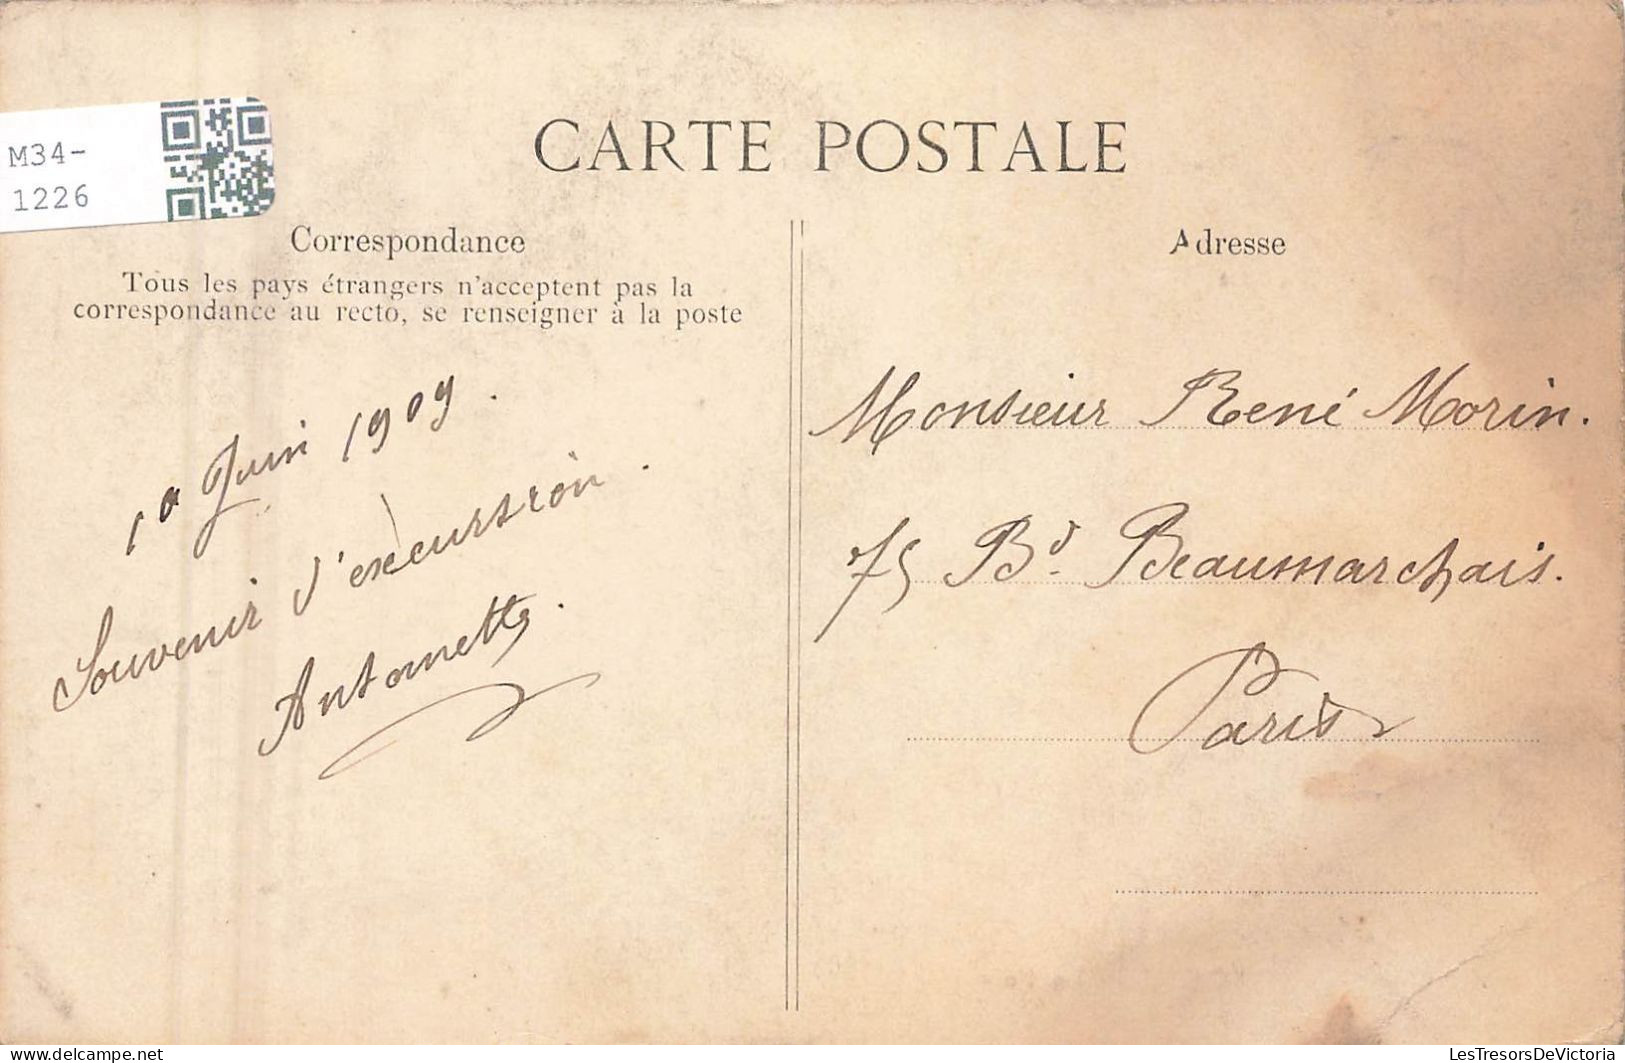 M34-
1226
CARTE POSTALE
Correspondance
Tous les pays étrangers n'acceptent pas la
correspondance au recto, se renseigner à la poste
10 Juin 1909.
Souvenir d'excursion.
Antoinette.
Adresse
Monsieur René Morin.
75 Bd. Beaumarchais.
Paris
delcampe.net
LesTresorsDeVictoria